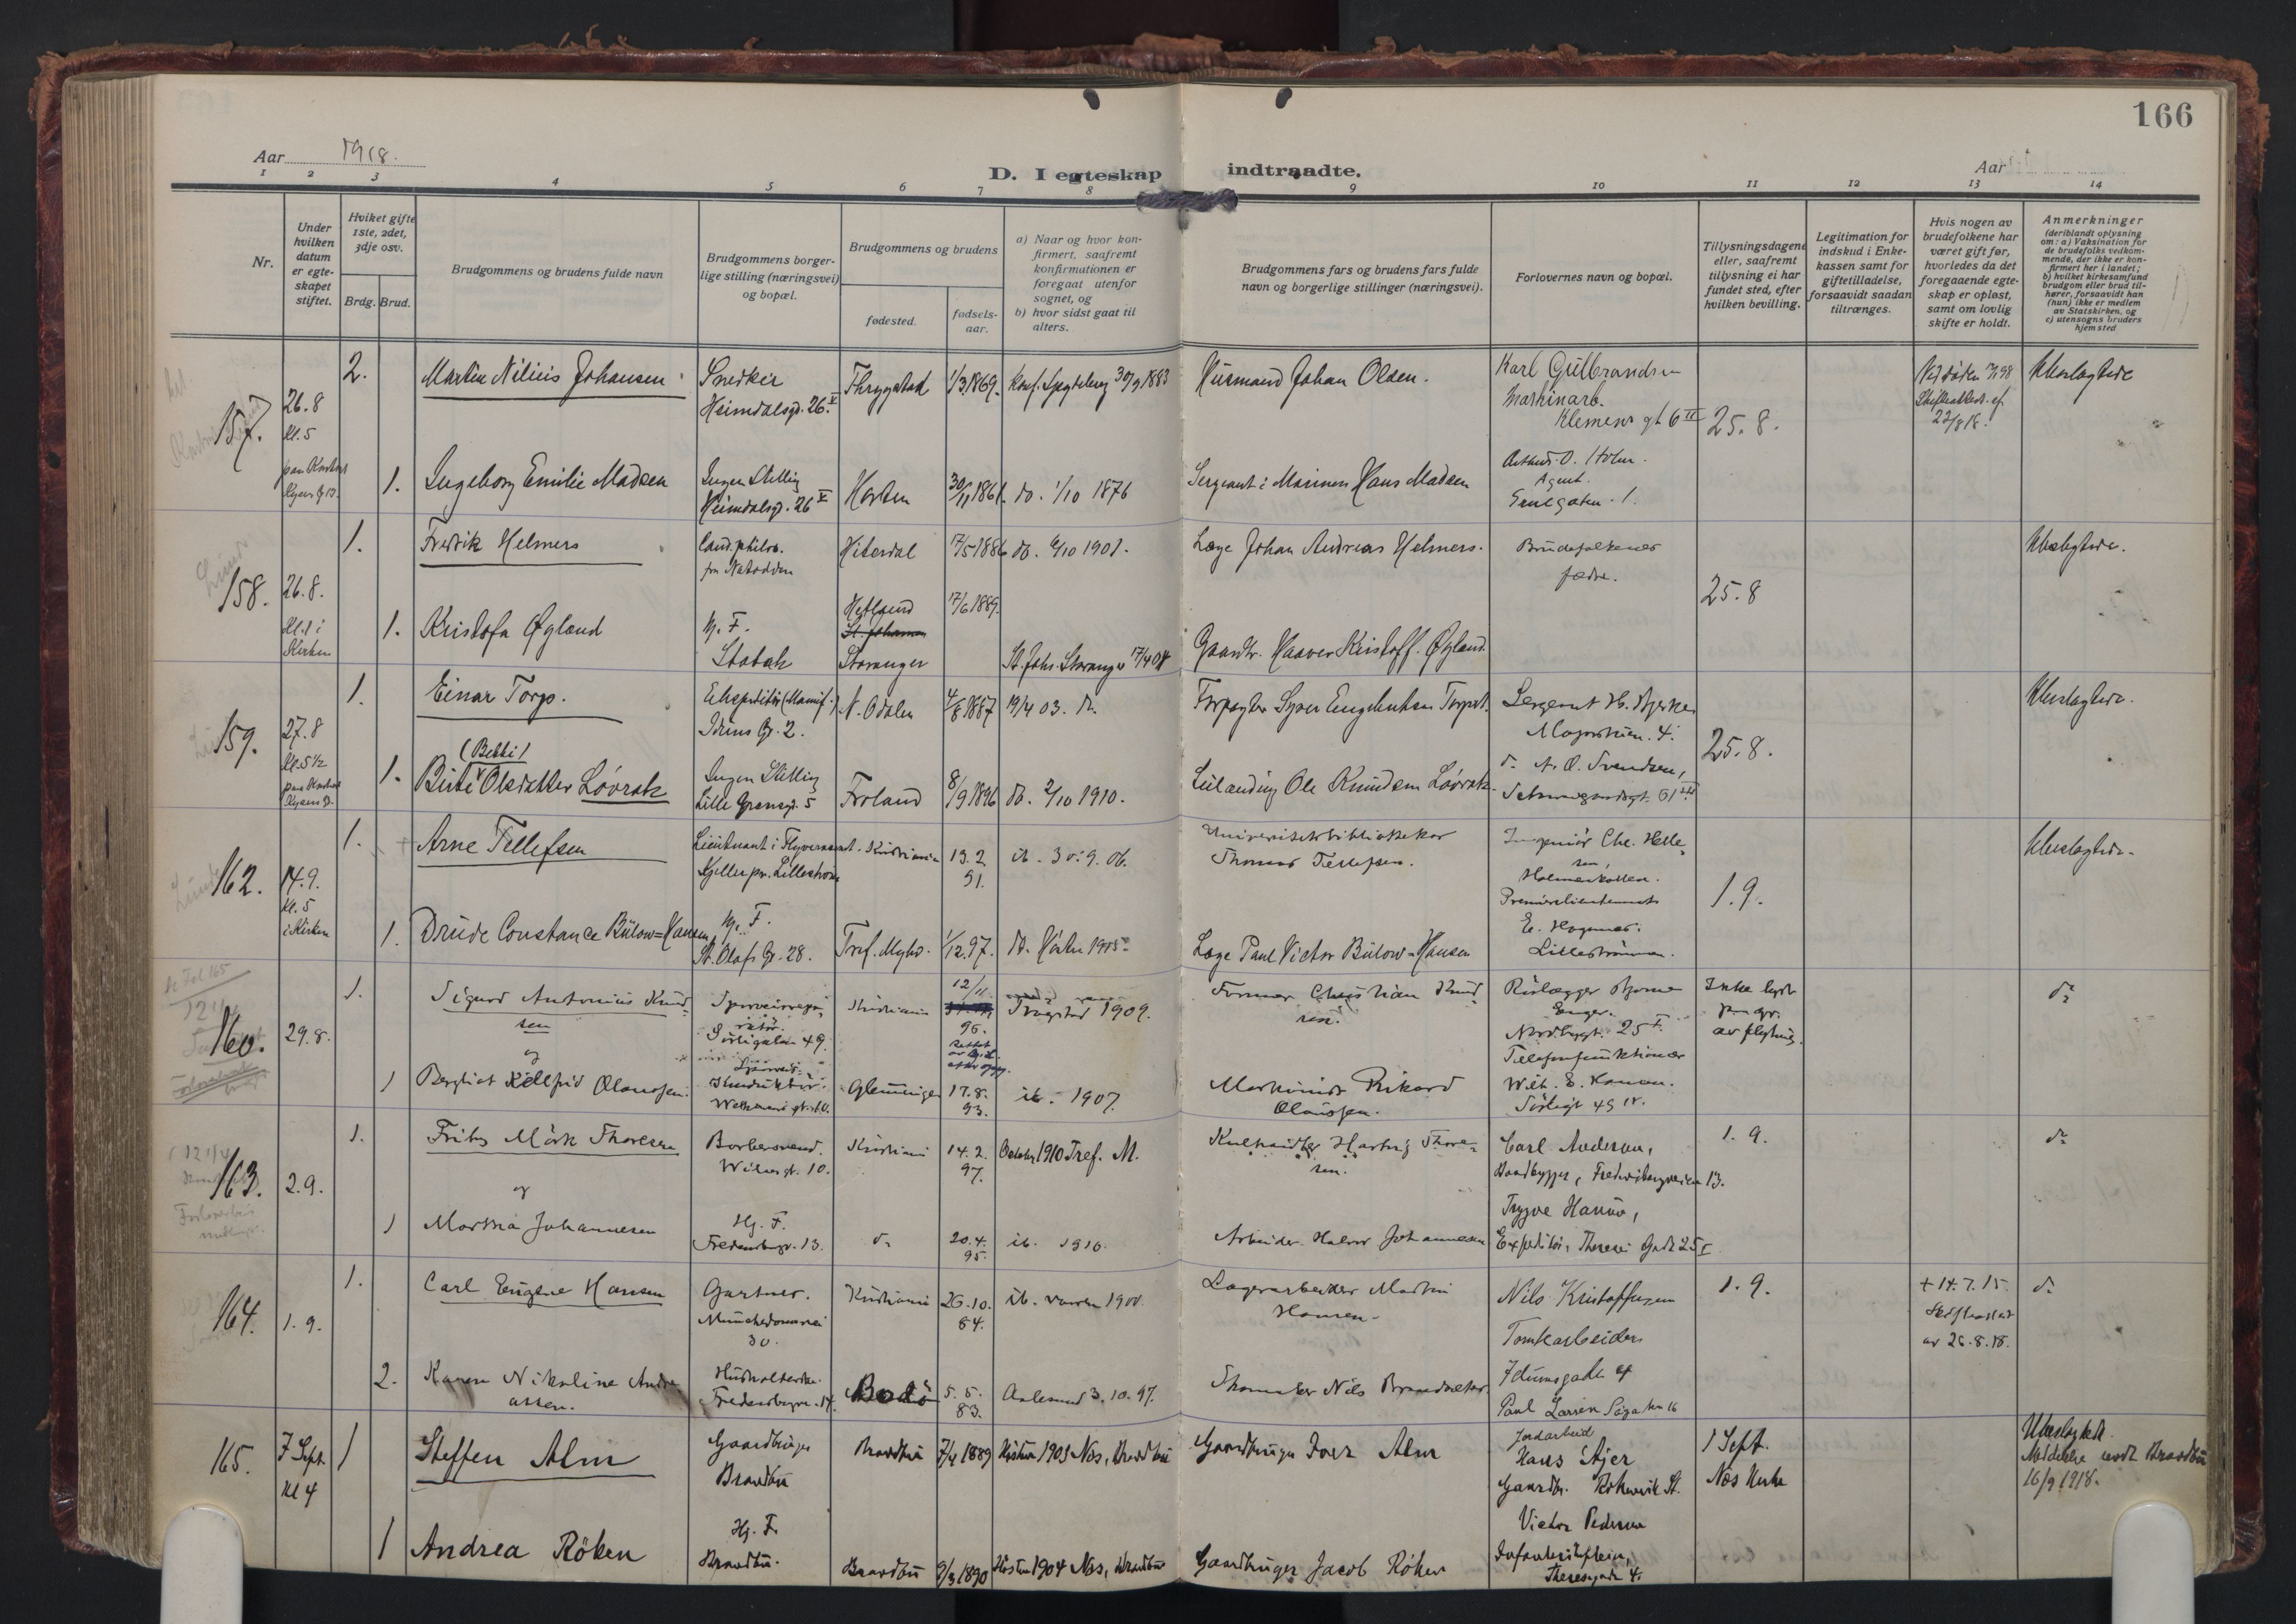 166
Aar 1918.
D. I egteskap indtraadte.
Aar
1 2 3 4 5 6 7 8 9 10 11 12 13 14
Nr.
Under hvilken datum er egteskapet stiftet.
Hvilket gifte 1ste, 2det, 3dje osv.
Brdg. Brud.
Brudgommens og brudens fulde navn
Brudgommens borgerlige stilling (næringsvei) og bopæl.
Brudgommens og brudens
fødested.
fødselsaar.
a) Naar og hvor konfirmert, saafremt konfirmationen er foregaat utenfor sognet, og
b) hvor sidst gaat til alters.
Brudgommens fars og brudens fars fulde navn og borgerlige stillinger (næringsvei).
Forlovernes navn og bopæl.
Tillysningsdagene eller, saafremt tillysning ei har fundet sted, efter hvilken bevilling.
Legitimation for indskud i Enkekassen samt for giftetilladelse, forsaavidt saadan tiltrænges.
Hvis nogen av brudefolkene har været gift før, hvorledes da det foregaaende egteskap er opløst, samt om lovlig skifte er holdt.
Anmerkninger (deriblandt oplysning om: a) Vaksination for de brudefolks vedkommende, der ikke er konfirmert her i landet; b) hvilket kirkesamfund brudgom eller brud tilhører, forsaavidt han (hun) ikke er medlem av Statskirken, og c) utensogns bruders hjemsted
157. 26.8 Kl. 5
2. Martin Nilius Johansen Snedker Heimdalsgt. 26 V Thrygstad 1/3 1869. Konf. Spydeberg 30/9 1883 Husmand Johan Olsen. Karl Gulbrandsen Maskinarb. Klemens gt 6 III 25.8. Ved døden Skifteattest af 22/8 18. Ubeslægtede
1. Ingeborg Emilie Madsen Ingen Stilling Heimdalsgt. 26 V Horten 30/11 1861. do. 1/10 1876 Sergeant i Marinen Hans Madsen Holm. Agent. 1.
158. 26.8. Kl. 1 i Kirken
1. Fredrik Helmers Cand. philos. fra Notodden Hiterdal 17/5 1886 do. 6/10 1901. Læge Johan Andreas Helmers. Brudefolkenes fædre. 25.8 Ubeslægtede.
1. Kristofa Øgland Hj. F. Stabæk Hetland St. Johannes Stavanger 17/6 1889. St. Johs. Stavanger 17/4 04 Gaardbr. Haaver Kristoff. Øgland.
159. 27.8 Kl. 5½
1. Einar Torp. Ekspeditør (Manuf.) Iduns Gt. 2. N. Odalen 4/8 1887 19/4 03. do. Forpagter Syver Engebretsen Torp. Sergeant H. Bjerke 4. 25.8. Ubeslægtede.
(Bekki)
1. Birte Olsdatter Løvrak Ingen Stilling Lille Grensegt. 5 Froland 8/9 1896 do. 2/10 1910. Ole Knudsen Løvrak A. O. Svendsen, Schweigaardsgt. 51
162. 14.9. Kl. 5 i Kirken
1. Arne Tellefsen Lieutnant i Flyvevæsenet. Kjeller pr. Lillestrøm Kristiania 13.2 91. ib. 30.9.06. Universitetsbibliotekar Thomas Tellefsen. Ingeniør Chr. Hellesen, Holmenkollen. Premierlieutenant E. Hagenæs. Lillestrømmen. 1.9. Ubeslægtede.
1. Drude Constance Bülow=Hansen, Hj. F. St. Olafs Gt. 28. Tref. Mgho. 1/12.97. do. Høsten 1915. Læge Paul Victor Bülow=Hansen
160. 29.8.
1. Sigurd Antonius Knudsen Sporveisrepa Sørligaten 49. Kristiania 12/11 96. Trøgstad 1909. Former Christian Knudsen. Rørlægger Bjarne Enger. Nordbygt. 25 I. Ikke lyst p. gr. av flytning. do
og
1 Bergliot Kielfrid Olaussen. Sporveis- Konduktør. Glemminge 17.8. 93. ib. 1907. Maskinist Rikard Olaussen. Telefonfunktionær Wilh. E. Hansen. Sørligt 49 IV.
163. 2.9.
1. Frits Mörk Thoresen Barbersvend. Wilsesgt. 10. Kristiania 14.2. 97. October 1910 Tref. M. Kulhandler Hartvig Thoresen. Carl Andersen, Baadbygger, Fredensborgveien 13. 1.9. do
og
1 Martha Johannesen Hj. F. Fredensbgv. 13. do 20.4. 95. ib. 1910. Arbeider Halvor Johannesen Trygve Hansen, Expeditør, Theresesgade 25 I
164. 1.9.
1. Carl Eugene Hansen Gartner. Munkedamsvei 30. Kristiania 26.10. 84. ib. vaaren 1900. Lagerarbeider Martin Hansen. Nils Kristoffersen Tomtearbeider Idunsgade 4 1.9. + 14.7.15. Skifteattest av 26.8.18. do
2. Karen Nikoline Andreassen. Husholderske. Fredensborgvn. 14. Bodø 5.5. 83. Aalesund 3.10.97. Skomaker Nils Paul Larsen 16
165. 7 Sept. Kl 4
1 Steffen Alm Gaardbruger Brandbu Brandbu 7/4 1889 Høsten 1903 Næs, Brandbu Gaardbruger Iver Alm Jordarbeid Hans Stjer Gaardbr. St. 1 Sept. Næs Kirke Ubeslægtede Meddelelse sendt Brandbu 16/9 1918.
1 Andrea Röken Hj. F. Brandbu. Brandbu 9/3 1890 Høsten 1904 Næs, Brandbu Gaardbruger Jacob Röken Victor Pedersen Theresegade 4.